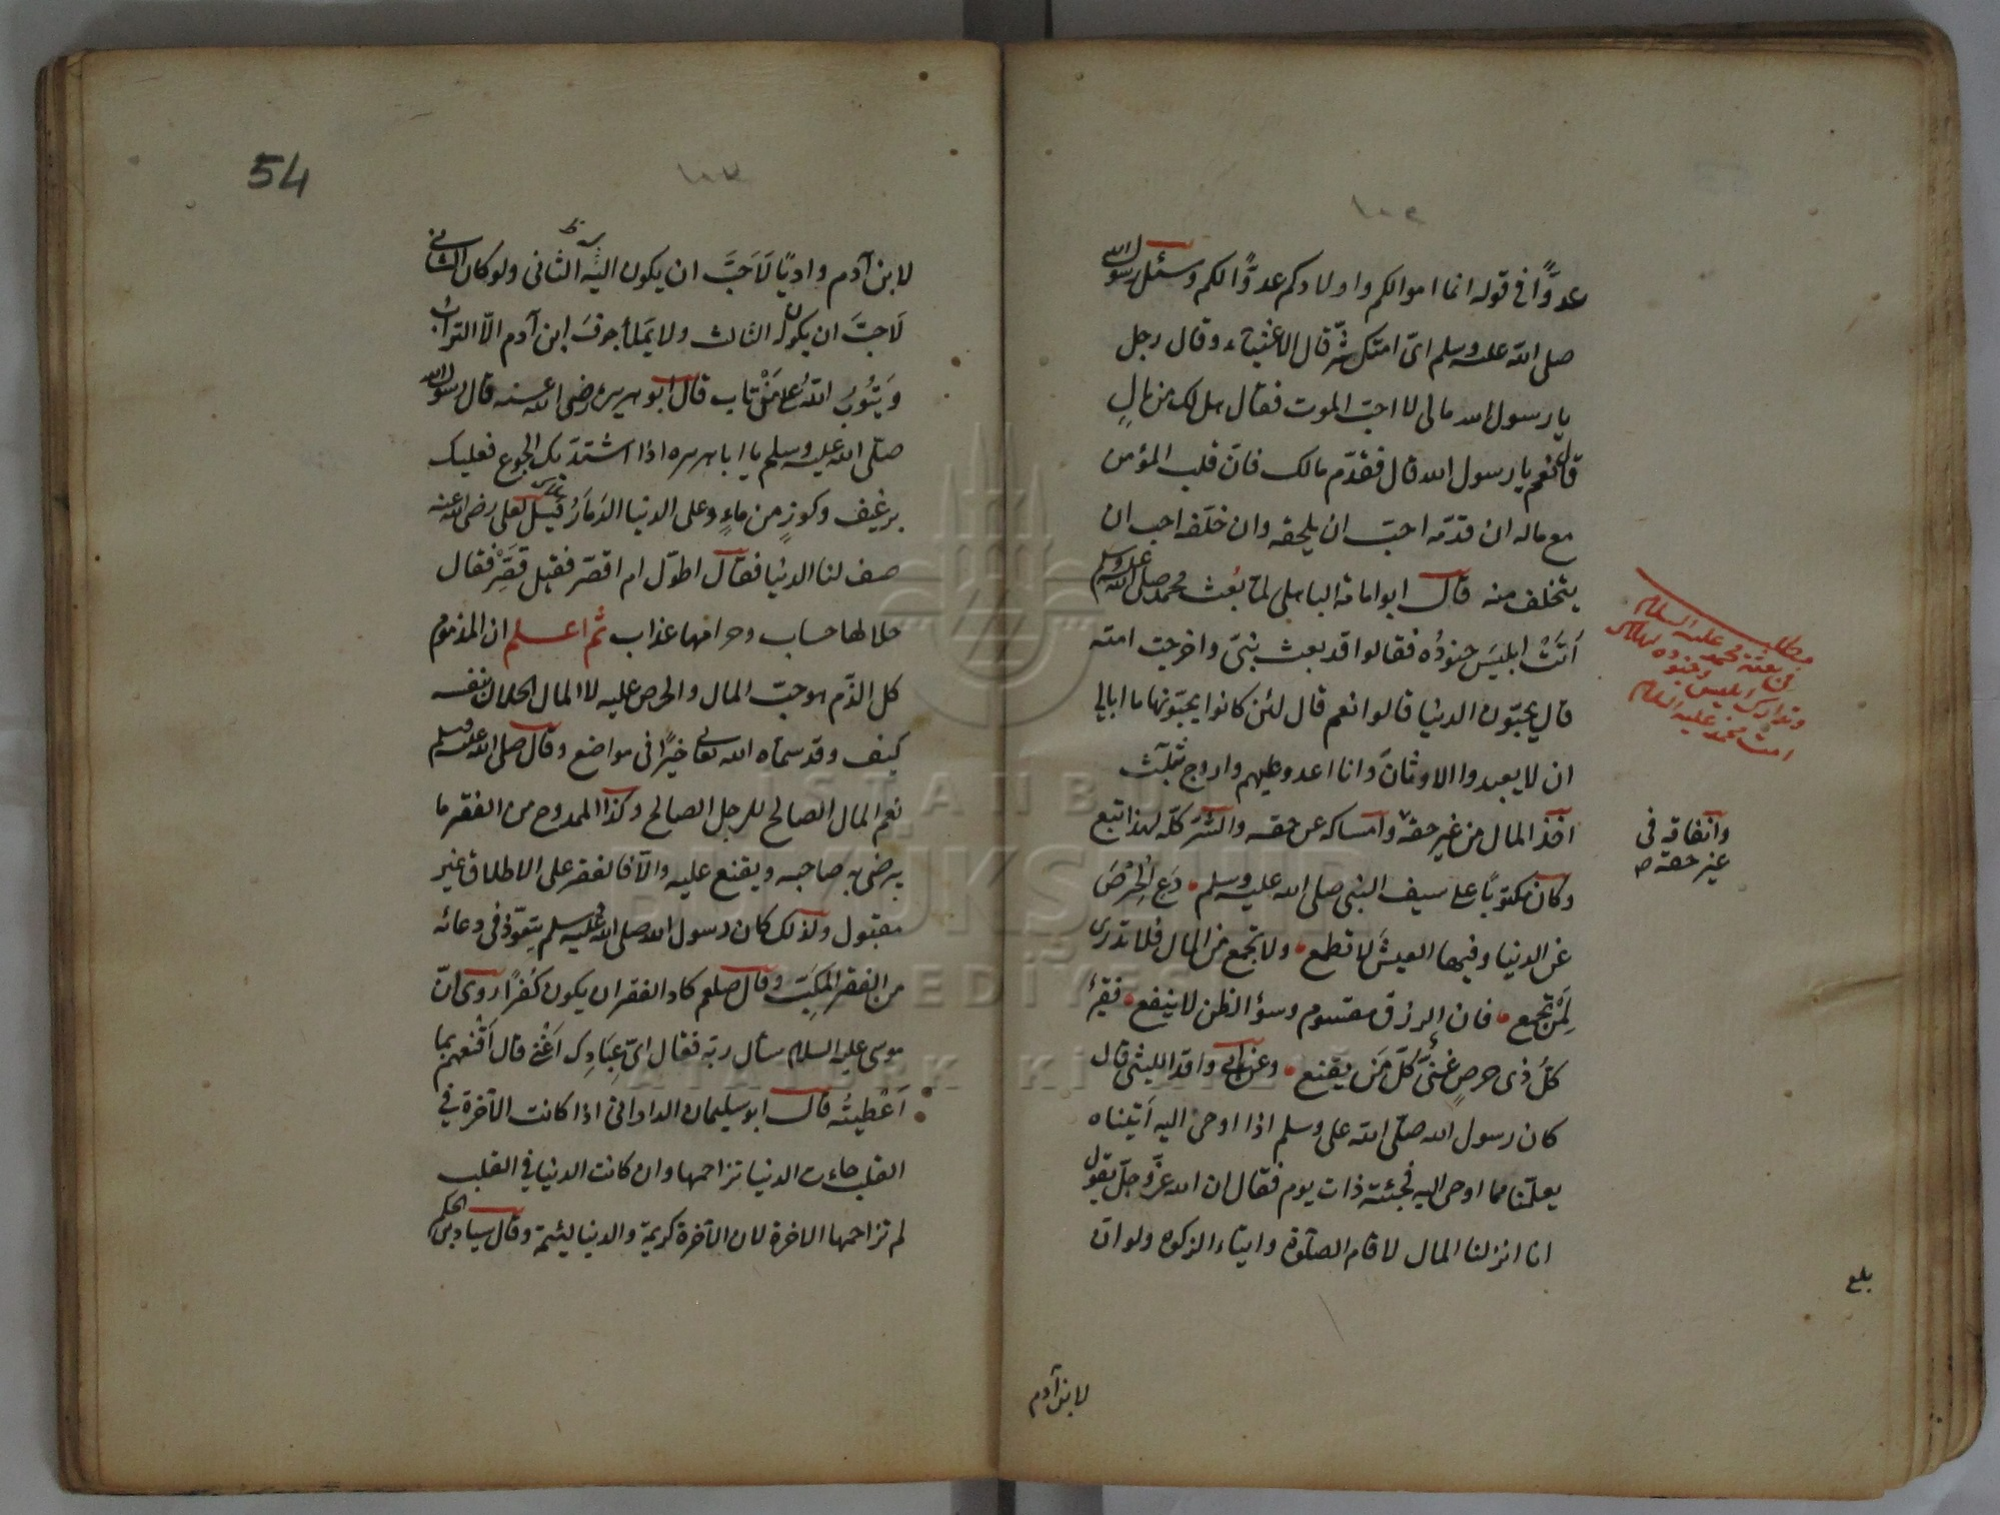 عدوًّا في قوله انما اموالكم واولادكم عدوًّا لكم وسئل رسول الله
صلى الله عليه وسلم اىّ امتك شرّ قال الاغنياء وقال رجل
يا رسول الله مالى لا احبّ الموت فقال هل لك من مالٍ
قال نعم يا رسول الله قال فقدّم مالك فانّ قلب المؤمن
مع ماله ان قدّمه احبّ ان يلحقه وان خلّفه احب ان
يتخلف منه قال ابو امامة الباهلى لمّا بُعث محمد صلى الله عليه وسلم
اَتَتْ ابليسَ جنودُه فقالوا قد بعث نبىّ واخرجت امته
قال يحبّون الدنيا قالوا نعم قال لئن كانوا يحبّونها ما ابالى
ان لا يعبدوا الاوثانَ وانا اعدو عليهم واروح بثلثٍ
اخذ المال من غير حقّه وامساكه عن حقه والشّر كلّه لهذا تبع
وكان مكتوبًا على سيف النبى صلى الله عليه وسلم دَعِ الحِرْصَ
عن الدنيا وفيها العيشَ لا تطمع ولا تجمع من المال فلا تدرى
لِمَنْ تجمع فان الرزق مقسوم وسؤ الظن لا ينفع فقيرٌ
كلُّ ذى حرصٍ غنىٌّ كلّ مَن يقنع وعن ابى واقد الليثى قال
كان رسول الله صلّى الله على وسلم اذا اوحى اليه اَتيناه
يعلّمنا مما اوحى اليه فجئته ذات يوم فقال ان الله عزّ وجلّ يقول
انا انزلنا المال لاقام الصلوة وايتاء الزكوة ولو انّ
مطلب
فى بعثة محمد عليه السلام
وتدارك ابليس وجنوده
امت محمد عليه السلام
وانفاقه فى
غير حقه ص
بلغ
لابن آدم
54
لابن آدم واديًا لَاَحَبَّ ان يكون اليه الثانى ولو كان الثانى
لَاَحبَّ ان يكون الثالث ولا يَملأ جوفَ ابن آدم الّا الترابُ
وَيَتُوبُ اللّٰهُ على مَنْ تاب قال ابو هريرة رضى الله عنه قال رسول الله
صلّى الله عليه وسلم يا ابا هريره اذا اشتدّ بك الجوع فعليك
برغيف وكوزٍ من ماءٍ وعلى الدنيا الدَمَارُ قيل لعلى رضى الله عنه
صف لنا الدنيا فقال اطوّل ام اقصّر فقيل قَصِّرْ فقال
حلالها حساب وحرامها عذاب ثم اعلم ان المذموم
كل الذّم هو حبّ المال والحرص عليه لا المال الحلال نفسه
كيف وقد سمّاه الله تعالى خيرًا فى مواضع وقال صلى الله عليه وسلم
نعم المال الصالح للرجل الصالح وكذا الممدوح من الفقر ما
يرضى به صاحبه ويقنع عليه والّا فالفقر على الاطلاق غير
مقبول ولذلك كان رسول الله صلى الله عليه وسلم يتعوّذ فى دعائه
من الفقر المُكِبّ وقال صلعم كاد الفقر ان يكون كُفرًا روى انّ
موسى عليه السلام سأل ربّه فقال اىّ عِبَادِك اَغْنى قال اَقْنعهم بما
اَعْطَيتُه قال ابو سليمان الدارانىّ اذا كانت الآخرة فى
القلب جاءت الدنيا تزاحمها وان كانت الدنيا فى القلب
لم تزاحمها الاخرة لان الآخرة كريمة والدنيا لئيمة وقال سيار بن الحكم